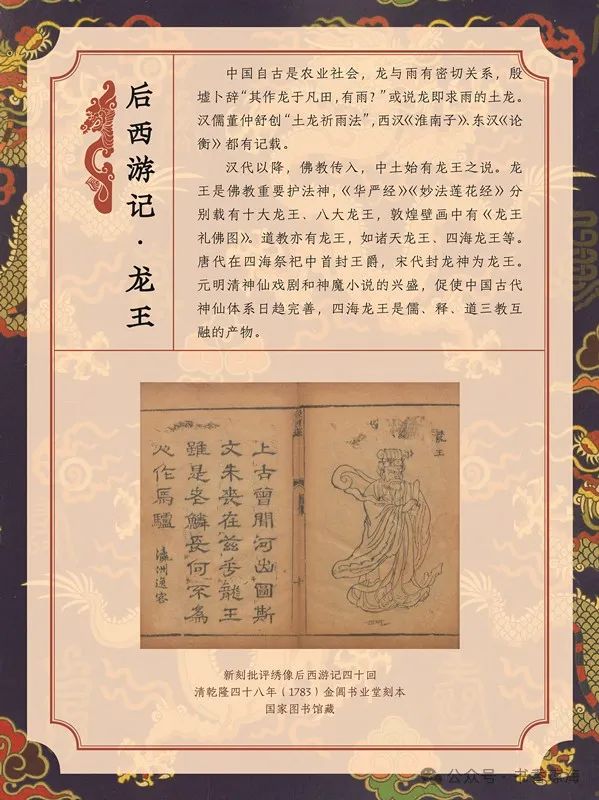 后西游记·龙王
中国自古是农业社会，龙与雨有密切关系，殷
墟卜辞“其作龙于凡田，有雨？”或说龙即求雨的土龙。
汉儒董仲舒创“土龙祈雨法”，西汉《淮南子》、东汉《论
衡》都有记载。
汉代以降，佛教传入，中土始有龙王之说。龙
王是佛教重要护法神，《华严经》《妙法莲花经》分
别载有十大龙王、八大龙王，敦煌壁画中有《龙王
礼佛图》。道教亦有龙王，如诸天龙王、四海龙王等。
唐代在四海祭祀中首封王爵，宋代封龙神为龙王。
元明清神仙戏剧和神魔小说的兴盛，促使中国古代
神仙体系日趋完善，四海龙王是儒、释、道三教互
融的产物。
龍王
上古曾聞河出圖斯
文未喪在茲乎龍王
雖是老鱗長何不為
人作馬驢
瀛洲逸客
新刻批评绣像后西游记四十回
清乾隆四十八年（1783）金阊书业堂刻本
国家图书馆藏
公众号·书香